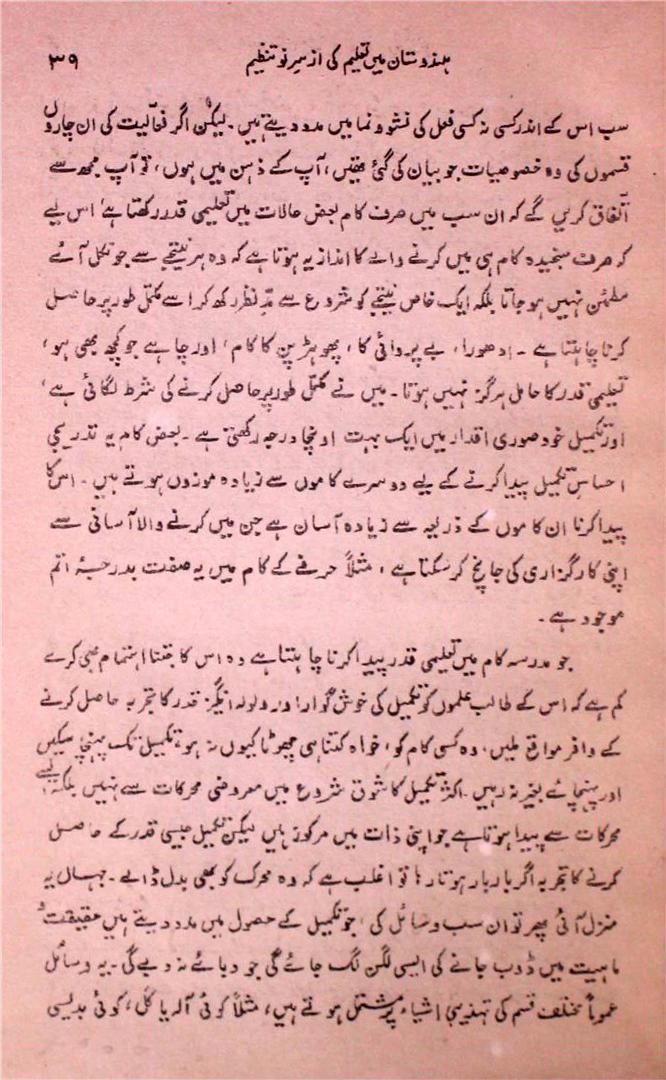 ہندوستان میں تعلیم کی از سرِ نو تنظیم ۳۹
سب اس کے اندر کسی نہ کسی فعل کی نشو و نما میں مدد دیتے ہیں۔ لیکن اگر فعالیت کی ان چاروں
قسموں کی وہ خصوصیات جو بیان کی گئی تھیں، آپ کے ذہن میں ہوں، تو آپ مجھ سے
اتفاق کریں گے کہ ان سب میں صرف کام بعض حالات میں تعلیمی قدر رکھتا ہے، اس لیے
کہ صرف سنجیدہ کام ہی میں کرنے والے کا انداز یہ ہوتا ہے کہ وہ ہر نتیجے سے جو نکل آئے
مطمئن نہیں ہو جاتا بلکہ ایک خاص نتیجے کو شروع سے مدِّ نظر رکھ کر اسے مکمّل طور پر حاصل
کرنا چاہتا ہے۔ ادھورا، بے پروائی کا، پھوہڑ پن کا کام، اور چاہے جو کچھ بھی ہو،
تعلیمی قدر کا حامل ہرگز نہیں ہوتا۔ میں نے مکمّل طور پر حاصل کرنے کی شرط لگائی ہے،
اور تکمیل خود صوری اقدار میں ایک بہت اونچا درجہ رکھتی ہے۔ بعض کام یہ تدریجی
احساسِ تکمیل پیدا کرنے کے لیے دوسرے کاموں سے زیادہ موزوں ہوتے ہیں۔ اس کا
پیدا کرنا ان کاموں کے ذریعہ سے زیادہ آسان ہے جن میں کرنے والا آسانی سے
اپنی کارگزاری کی جانچ کر سکتا ہے، مثلاً حرفے کے کام میں یہ صفت بدرجۂ اتم
موجود ہے۔
جو مدرسہ کام میں تعلیمی قدر پیدا کرنا چاہتا ہے وہ اس کا جتنا اہتمام بھی کرے
کم ہے کہ اس کے طالب علموں کو تکمیل کی خوش گوار اور ولولہ انگیز قدر کا تجربہ حاصل کرنے
کے وافر مواقع ملیں، وہ کسی کام کو، خواہ کتنا ہی چھوٹا کیوں نہ ہو، تکمیل تک پہنچا سکیں
اور پہنچائے بغیر نہ رہیں۔ اکثر تکمیل کا شوق شروع میں معروضی محرکات سے نہیں بلکہ ایسے
محرکات سے پیدا ہوتا ہے جو اپنی ذات میں مرکوز ہیں لیکن تکمیل جیسی قدر کے حاصل
کرنے کا تجربہ اگر بار بار ہوتا رہا تو اغلب ہے کہ وہ محرک کو بھی بدل ڈالے۔ جہاں یہ
منزل آئی پھر تو ان سب وسائل کی، جو تکمیل کے حصول میں مدد دیتے ہیں حقیقت و
ماہیت میں ڈوب جانے کی ایسی لگن لگ جائے گی جو دبائے نہ دبے گی۔ یہ وسائل
عموماً مختلف قسم کی تہذیبی اشیاء پر مشتمل ہوتے ہیں، مثلاً کوئی آلہ یا کَل، کوئی بدیسی